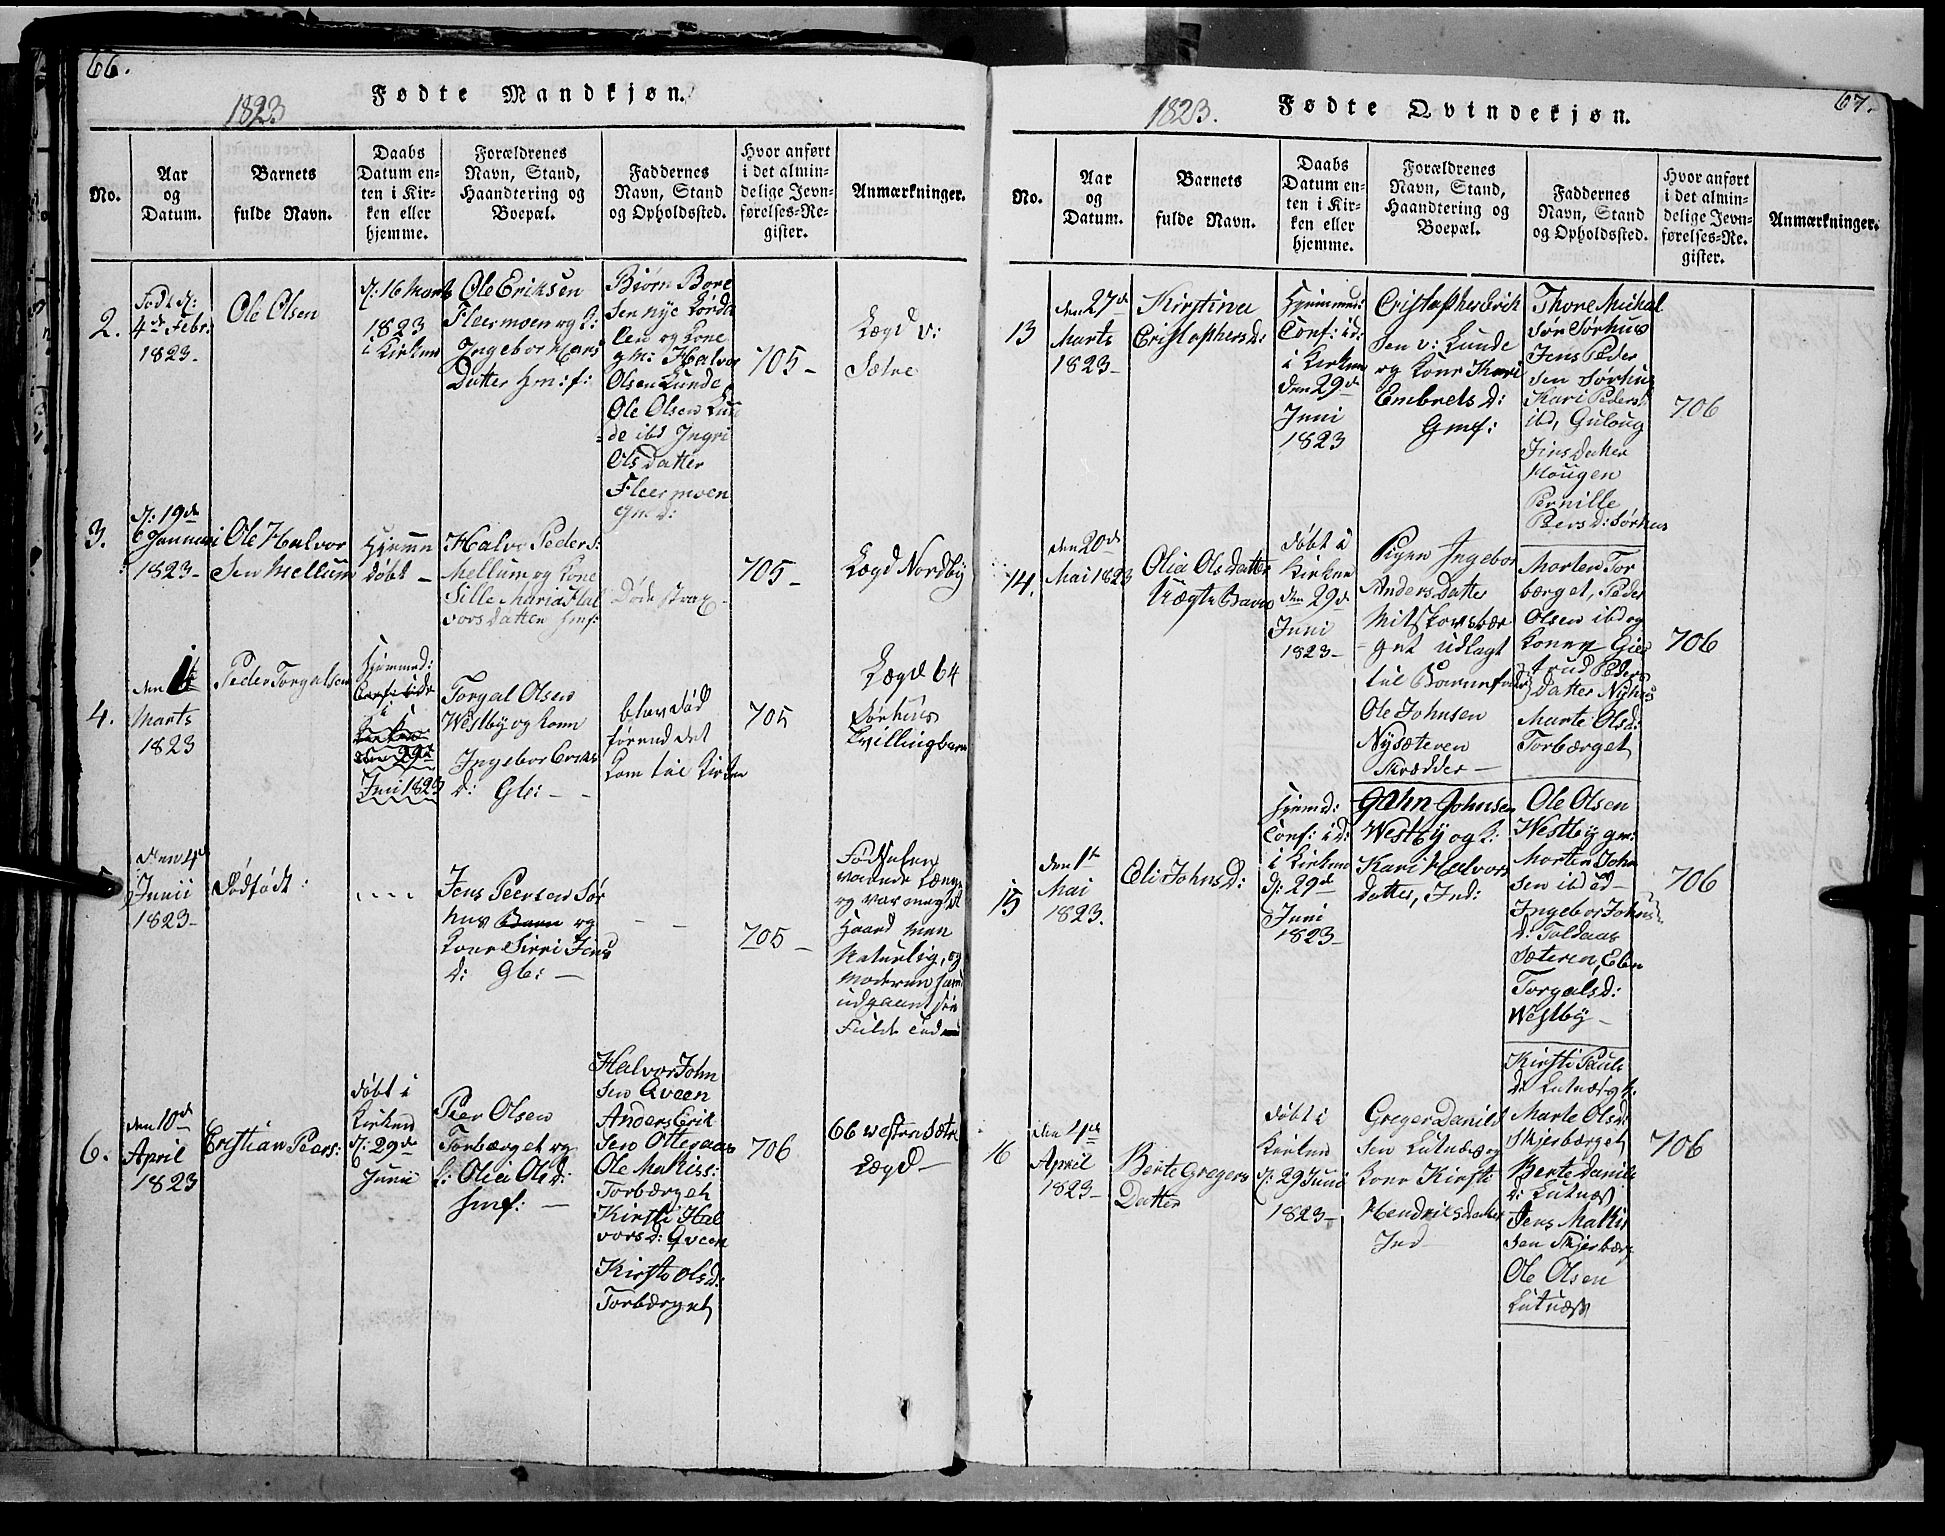 66.
1823
Fødte Mandkjøn.
No.
Aar
og
Datum.
Barnets
fulde Navn.
Daabs
Datum en-
ten i Kir-
ken eller
hjemme.
Forældrenes
Navn, Stand,
Haandtering og
Boepæl.
Faddernes
Navn, Stand
og Opholdsted.
Hvor anført
i det almin-
delige Jevn-
førelses-Re-
gister.
Anmærkninger.
2.
Født d:
4de Febr:
1823-
Ole Olsen
d: 16 Marts
1823
i Kirken
Ole Eriksen
Fleermoen og k:
Ingebor Hans
Datter Hm:f:
Biørn Bore
sen nye Lørda
len og kone
gm: Halvor
Olsen Lunde
Ole Olsen Lun
de ibd Ingri
Ols datter
Fleermoen
gmd:
705-
Lægd v:
Sætre
3.
d: 19de
Januari
1823-
Ole Halvor
sen Mellum
Hjemme
døbt -
Halvo Peders:
Mellum og kone
Sille Maria Hal
vors Datter Hmf:
Døde strax-
705-
Lægd Nordby
4.
den 1te
Marts
1823
Peder Torgalsen
Hjemmed:
Juni 1823
Torgal Olsen
Westby og kone
Ingebor Eriks
d: Gb: - -
blev død
førend det
kom til Kirken
705
Lægd 64
Sørhuus
Tvillingbarn
5.
den 4de
Junii
1823-
Dødfødt:
Jens Peersen Sør
hus Barn og
kone Sirri Jens
d: Gb: -
705-
Fødselen
varede længe
og var meget
Haard men
Naturlig, og
Moderen havd
udgaaet sin
Fulde tid
6.
den 10de
April
1823
Cristian Peers:
døbt i
Kirken
d: 29de
Junii
Peer Olsen
Torbærget og
k: Olia Ols d:
Hmf: -
Halvor John
sen Qveen
Anders Erik
sen Ottegaar
Ole Makiss:
Torbærget
Kirsti Hal
vors d: Qveen
Kirste Ols d:
Torbærget
706
66 Westre Sætre
Lægd-
67.
1823.
Fødte Qvindekjøn.
No.
Aar
og
Datum.
Barnets
fulde Navn.
Daabs
Datum en-
ten i Kir-
ken eller
hjemme.
Forældrenes
Navn, Stand,
Haandtering og
Boepæl.
Faddernes
Navn, Stand
og Opholdsted.
Hvor anført
i det almin-
delige Jevn-
førelses-Re-
gister.
Anmærkninger.
13
den 27de
Marts
1823-
Kirstina
Cristophers d:
Hjemmed:
Conf: i d:
i Kirken
den 29de
Juni
1823
Cristopher Erik
sen v: Lunde
og kone Kari
Embrets d:
Gmf:
Thore Michal
sør Sørhus
Jens Peder
sen Sørhus
Kari Peders:
ibd, Guloug
Jens Datter
Hougen
Pernille
Peers d: Sørhus
706
14.
den 20de
Mai 1823
Olia Ols Datter
Uægte Barn
døbt i
Kirken
den 29de
Juni
1823-
Pigen Ingebor
Anders Datter
Mitskovsbær
get udlagt
til Barnefader
Ole Johnsen
Nysæteren
Skrædder-
Morten Tor
bærget, Peder
Olsen ibd og
konen Gier
trud Peders
Datter Nyhus
Marte Ols d:
Torbærget
706
15
den 1te
Mai
1823.
Eli Johns d:
Hjemd:
Conf: i d:
i Kirken
d: 29de
Juni
1823-
John Johnsen
Westby og k:
Kari Halvors
datter, Ind:
Ole Olsen
Westby gm:
Morten John
sen ibid-
Ingebor Johns
d: Toldaas
Sæteren, Elen
Torgals d:
Westby-
706
16
den 4de
April
1823-
Berte Gregers
Datter
døbt i
Kirken
d: 29 Juni
1823-
Greger Daniel
sen Lutnæs og
kone Kirsti
Hendriks datter
Ind
Kirsti Pauls
d: Lutnæs gk:
Marte Ols d:
Skjerbærget
Berte Daniels
d: Lutnæs
Jens Makis
sen Skjerbærg
Ole Olsen
Lutnæs
706